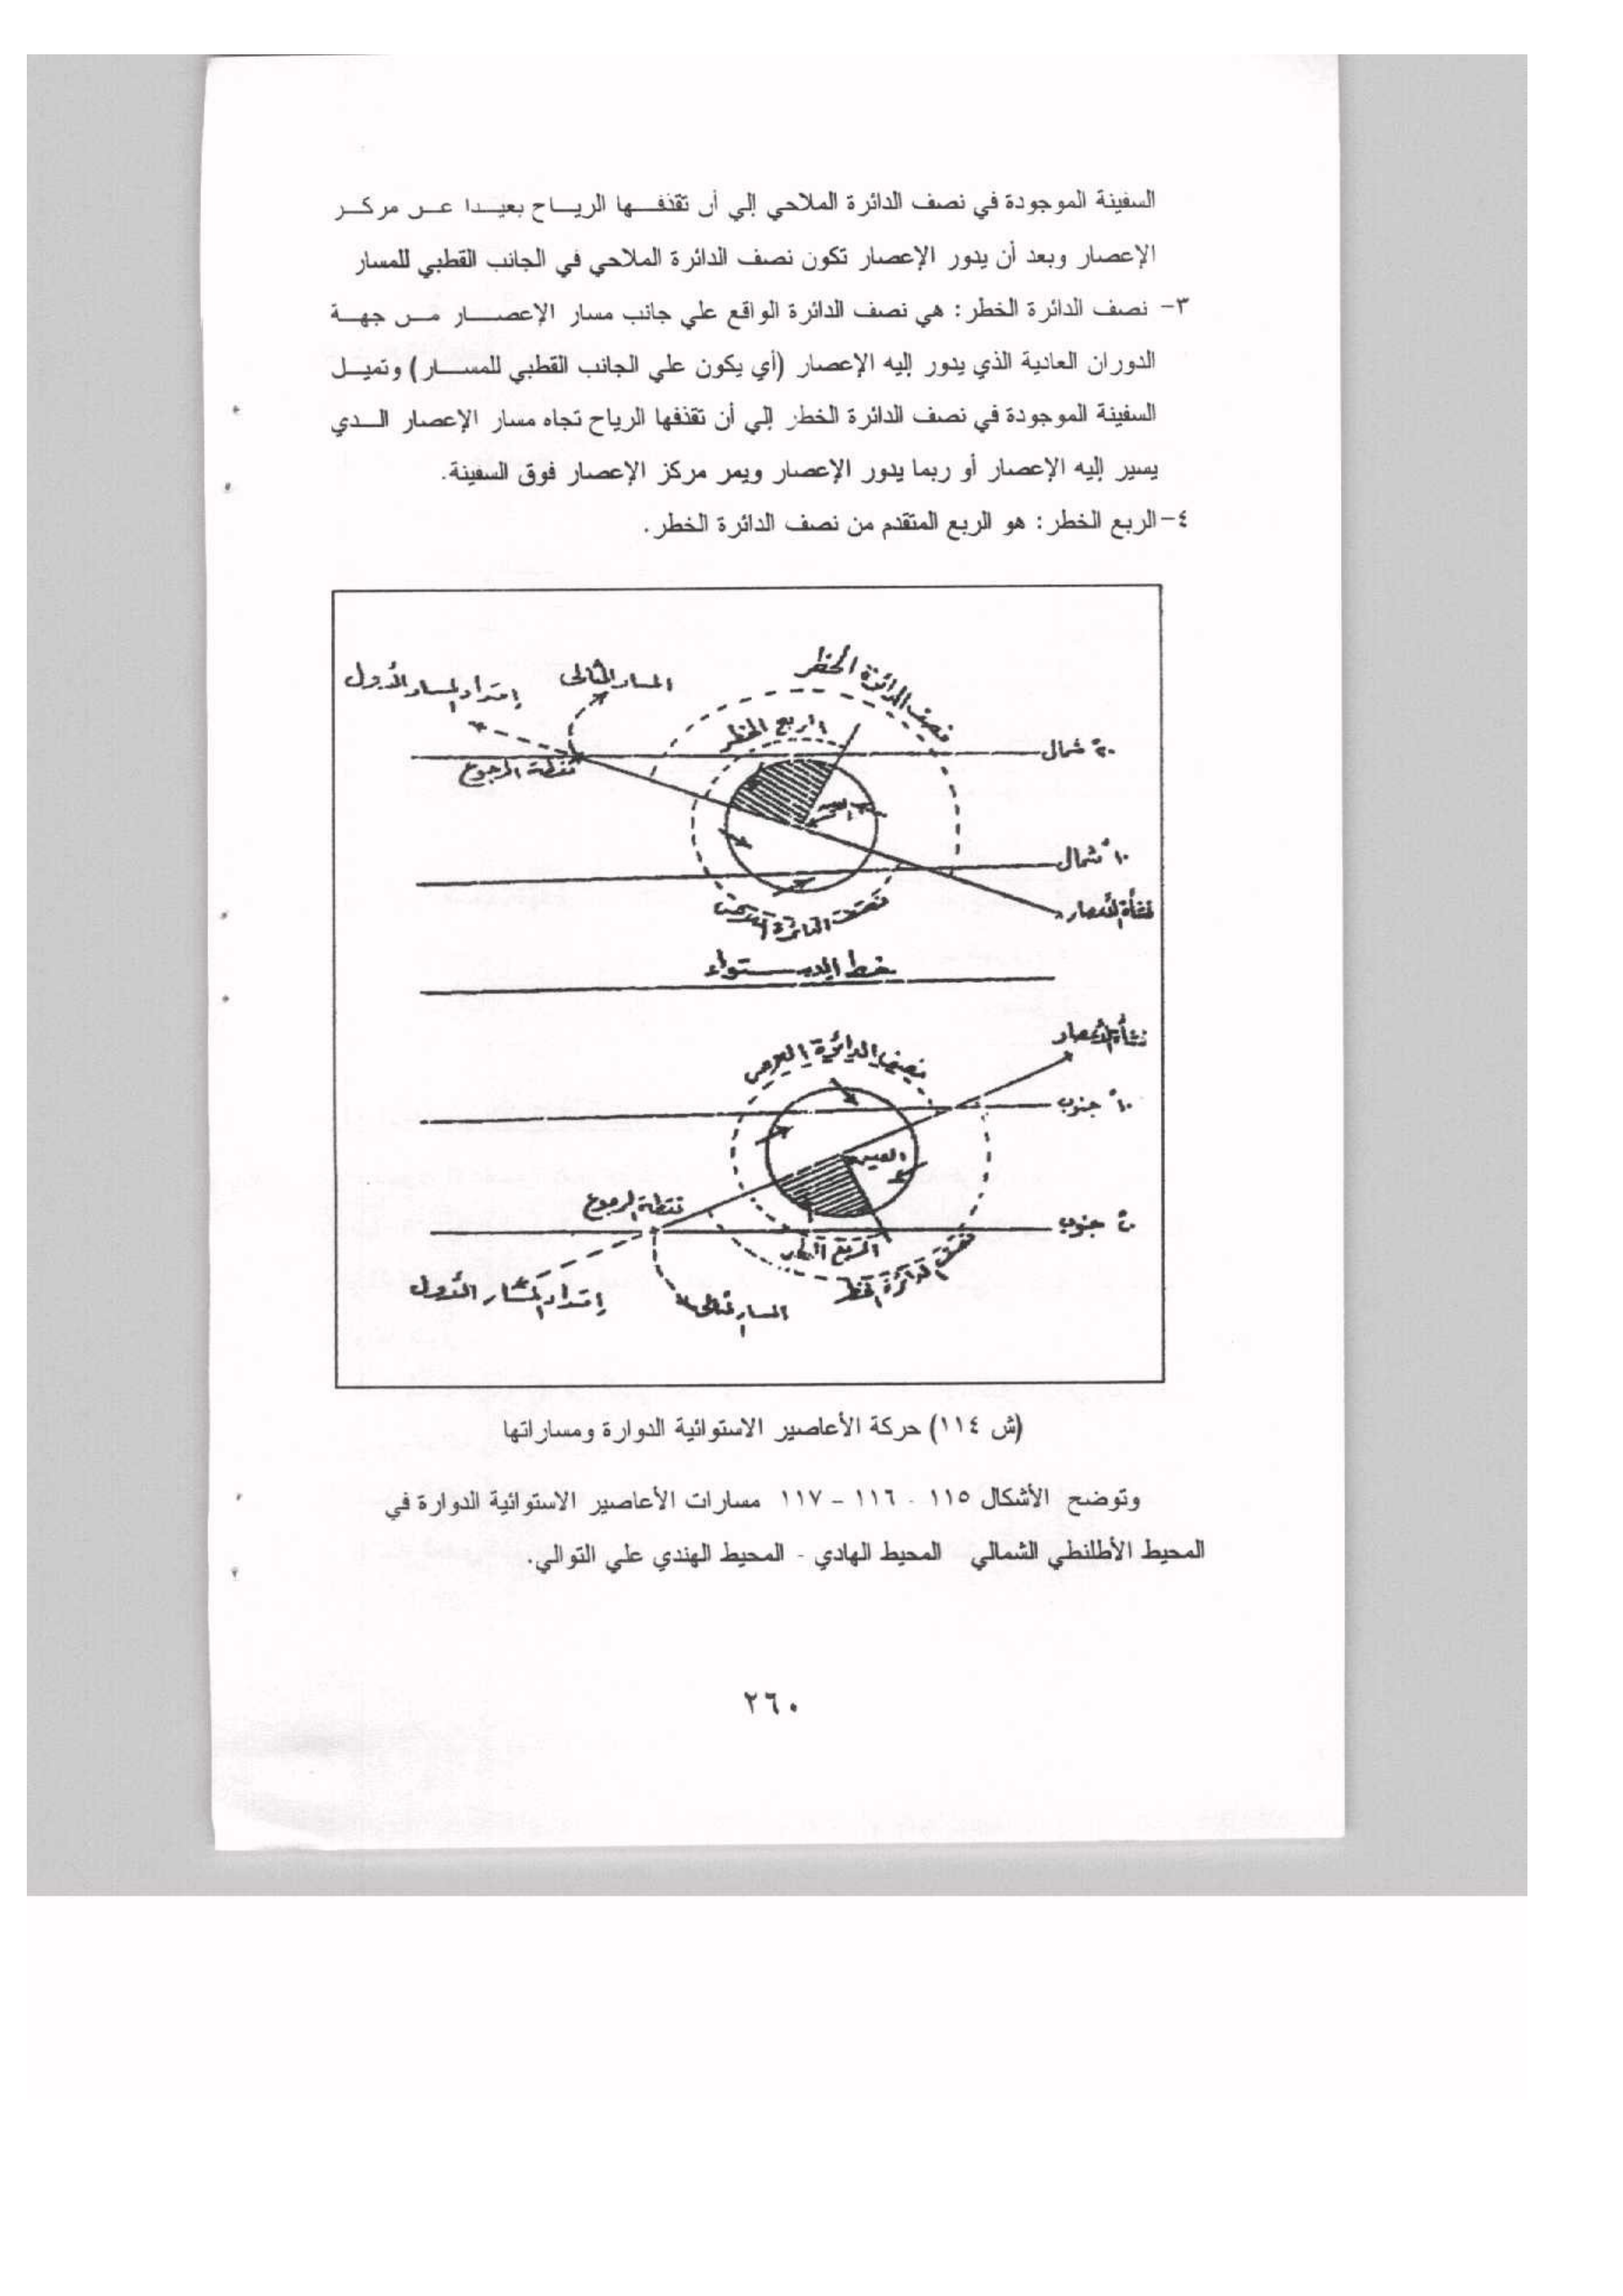 السفينة الموجودة في نصف الدائرة الملاحي إلي أن تقذفها الرياح بعيدا عن مركز
الإعصار وبعد أن يدور الإعصار تكون نصف الدائرة الملاحي في الجانب القطبي للمسار
٣- نصف الدائرة الخطر: هي نصف الدائرة الواقع علي جانب مسار الإعصار من جهة
الدوران العادية الذي يدور إليه الإعصار (أي يكون علي الجانب القطبي للمسار) وتميل
السفينة الموجودة في نصف الدائرة الخطر إلي أن تقذفها الرياح تجاه مسار الإعصار الدي
يسير إليه الإعصار أو ربما يدور الإعصار ويمر مركز الإعصار فوق السفينة.
٤- الربع الخطر: هو الربع المتقدم من نصف الدائرة الخطر.
نصف الدائرة الخطر
المسار المثالى
إمتداد المسار الأول
الربع الخطر
٢٠° شمال
نقطة الرجوع
العين
١٠° شمال
نشأة الأعصار
نصف الدائرة
خط الاستواء
نشأة الأعصار
نصف الدائرة
١٠° جنوب
العين
نقطة الرجوع
٢٠° جنوب
الربع الخطر
نصف الدائرة الخطر
إمتداد المسار الأول
المسار المثالى
(ش ١١٤) حركة الأعاصير الاستوائية الدوارة ومساراتها
وتوضح الأشكال ١١٥ - ١١٦ - ١١٧ مسارات الأعاصير الاستوائية الدوارة في
المحيط الأطلنطي الشمالي المحيط الهادي - المحيط الهندي علي التوالي.
٢٦٠